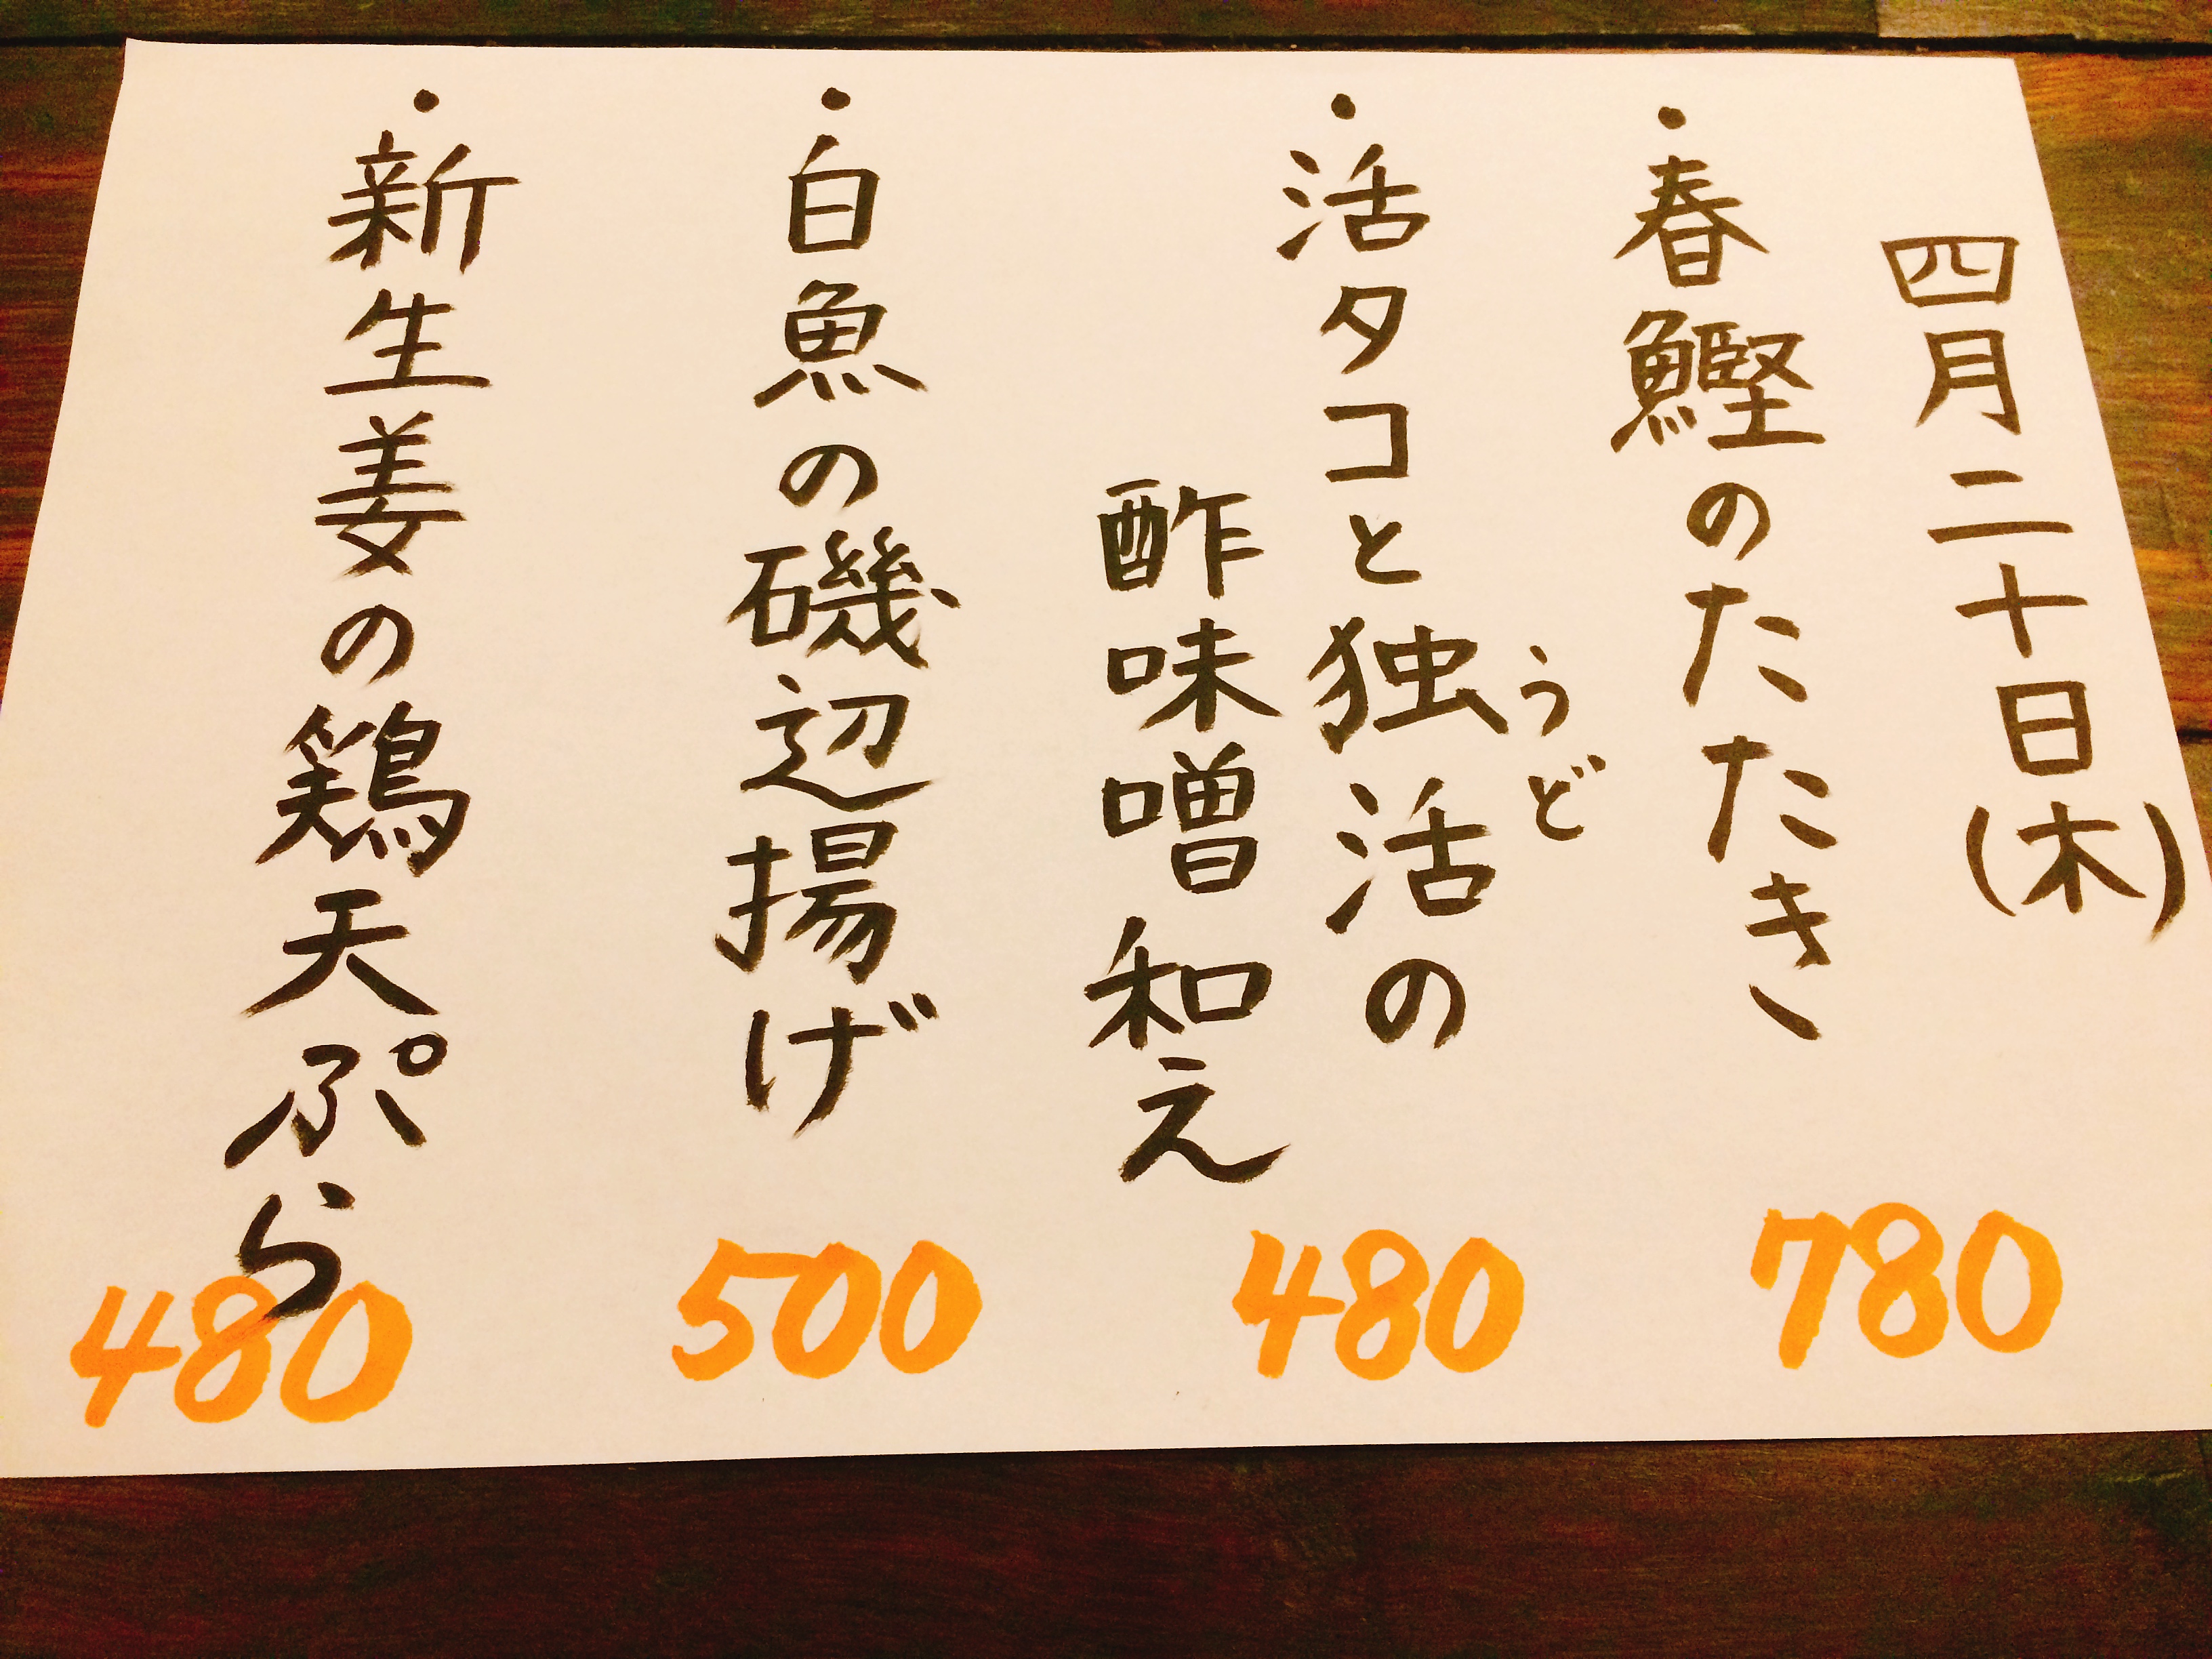 四月二十日(木)
・春鰹のたたき
780
・活タコと独活の
うど
酢味噌和え
480
・白魚の磯辺揚げ
500
・新生姜の鶏天ぷら
480